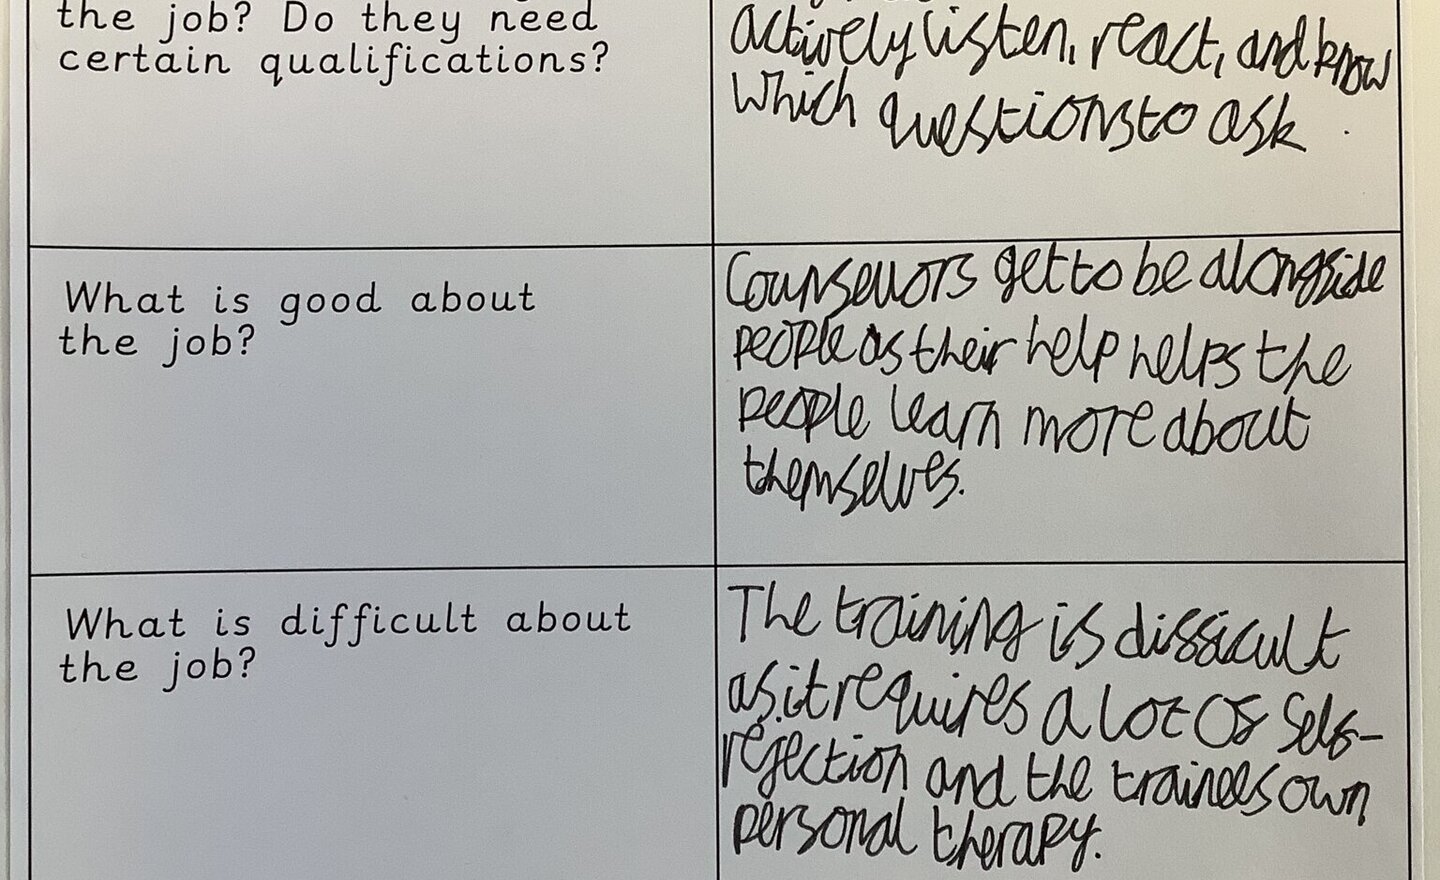 the job? Do they need
certain qualifications?
actively listen, react, and know
which questions to ask.
What is good about
the job?
Counsellors get to be alongside
people as their help helps the
people learn more about
themselves.
What is difficult about
the job?
The training is difficult
as it requires a lot of self-
rejection and the trainees own
personal therapy.